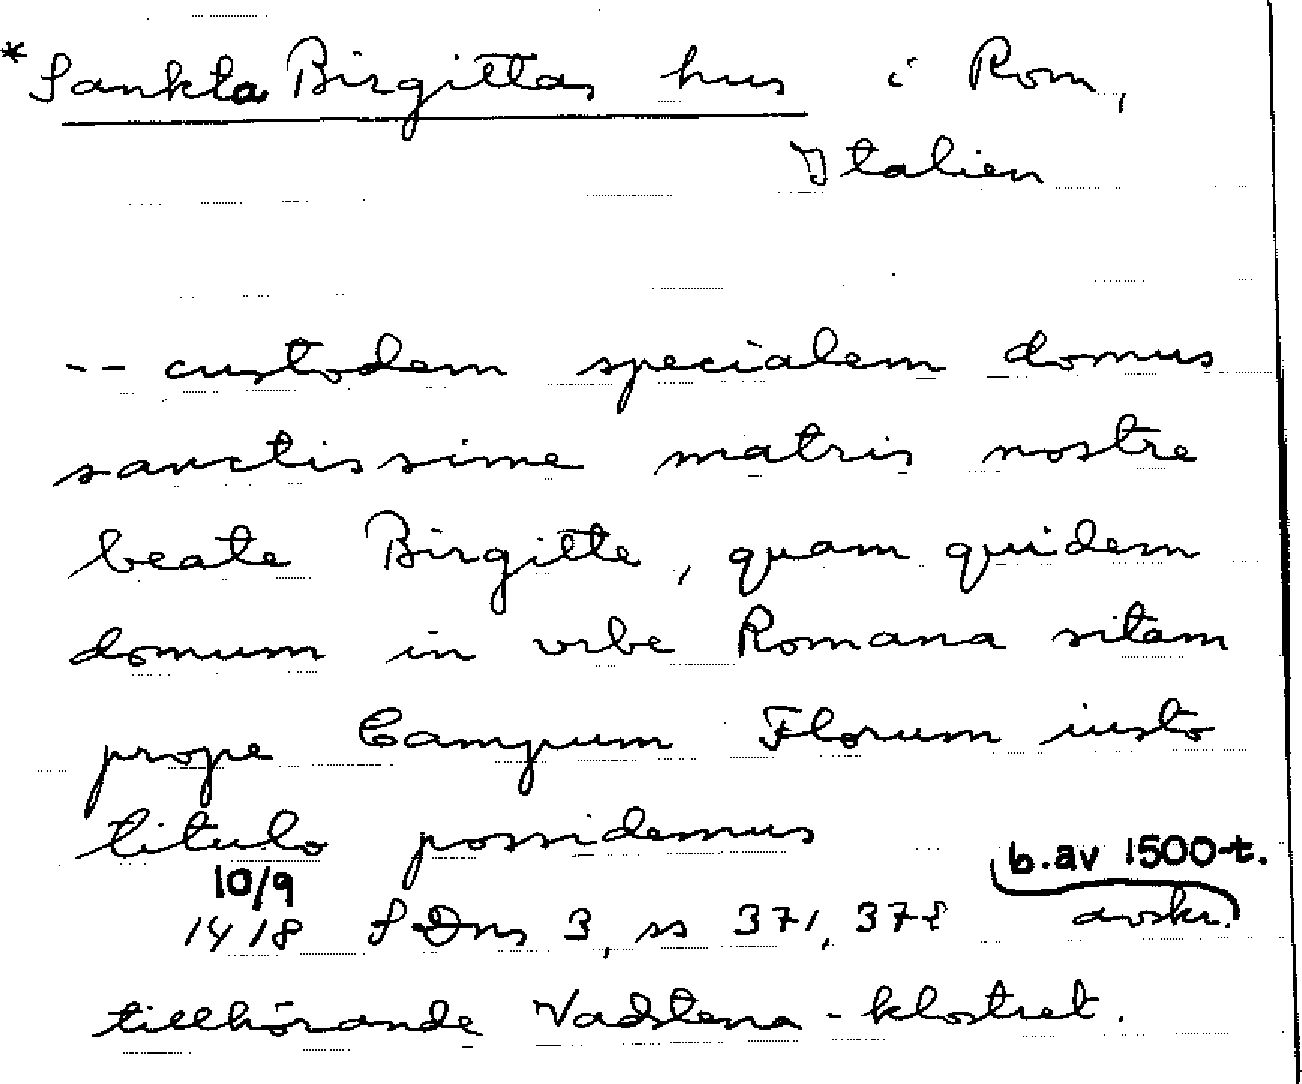 * Sankta Birgittas hus i Rom,
Italien
-- custodem specialem domus
sanctissime matris nostre
beate Birgitte, quam quidem
domum in vrbe Romana sitam
prope Campum Florum iusto
titulo possidemus
10/9 b. av 1500-t.
1418 SDns 3, ss 371, 372 avskr.
tillhörande Vadstena-klostret.